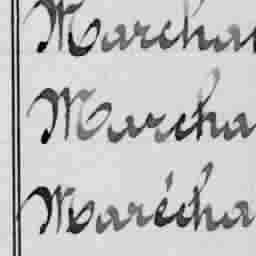 Marcha
Marcha
Marécha